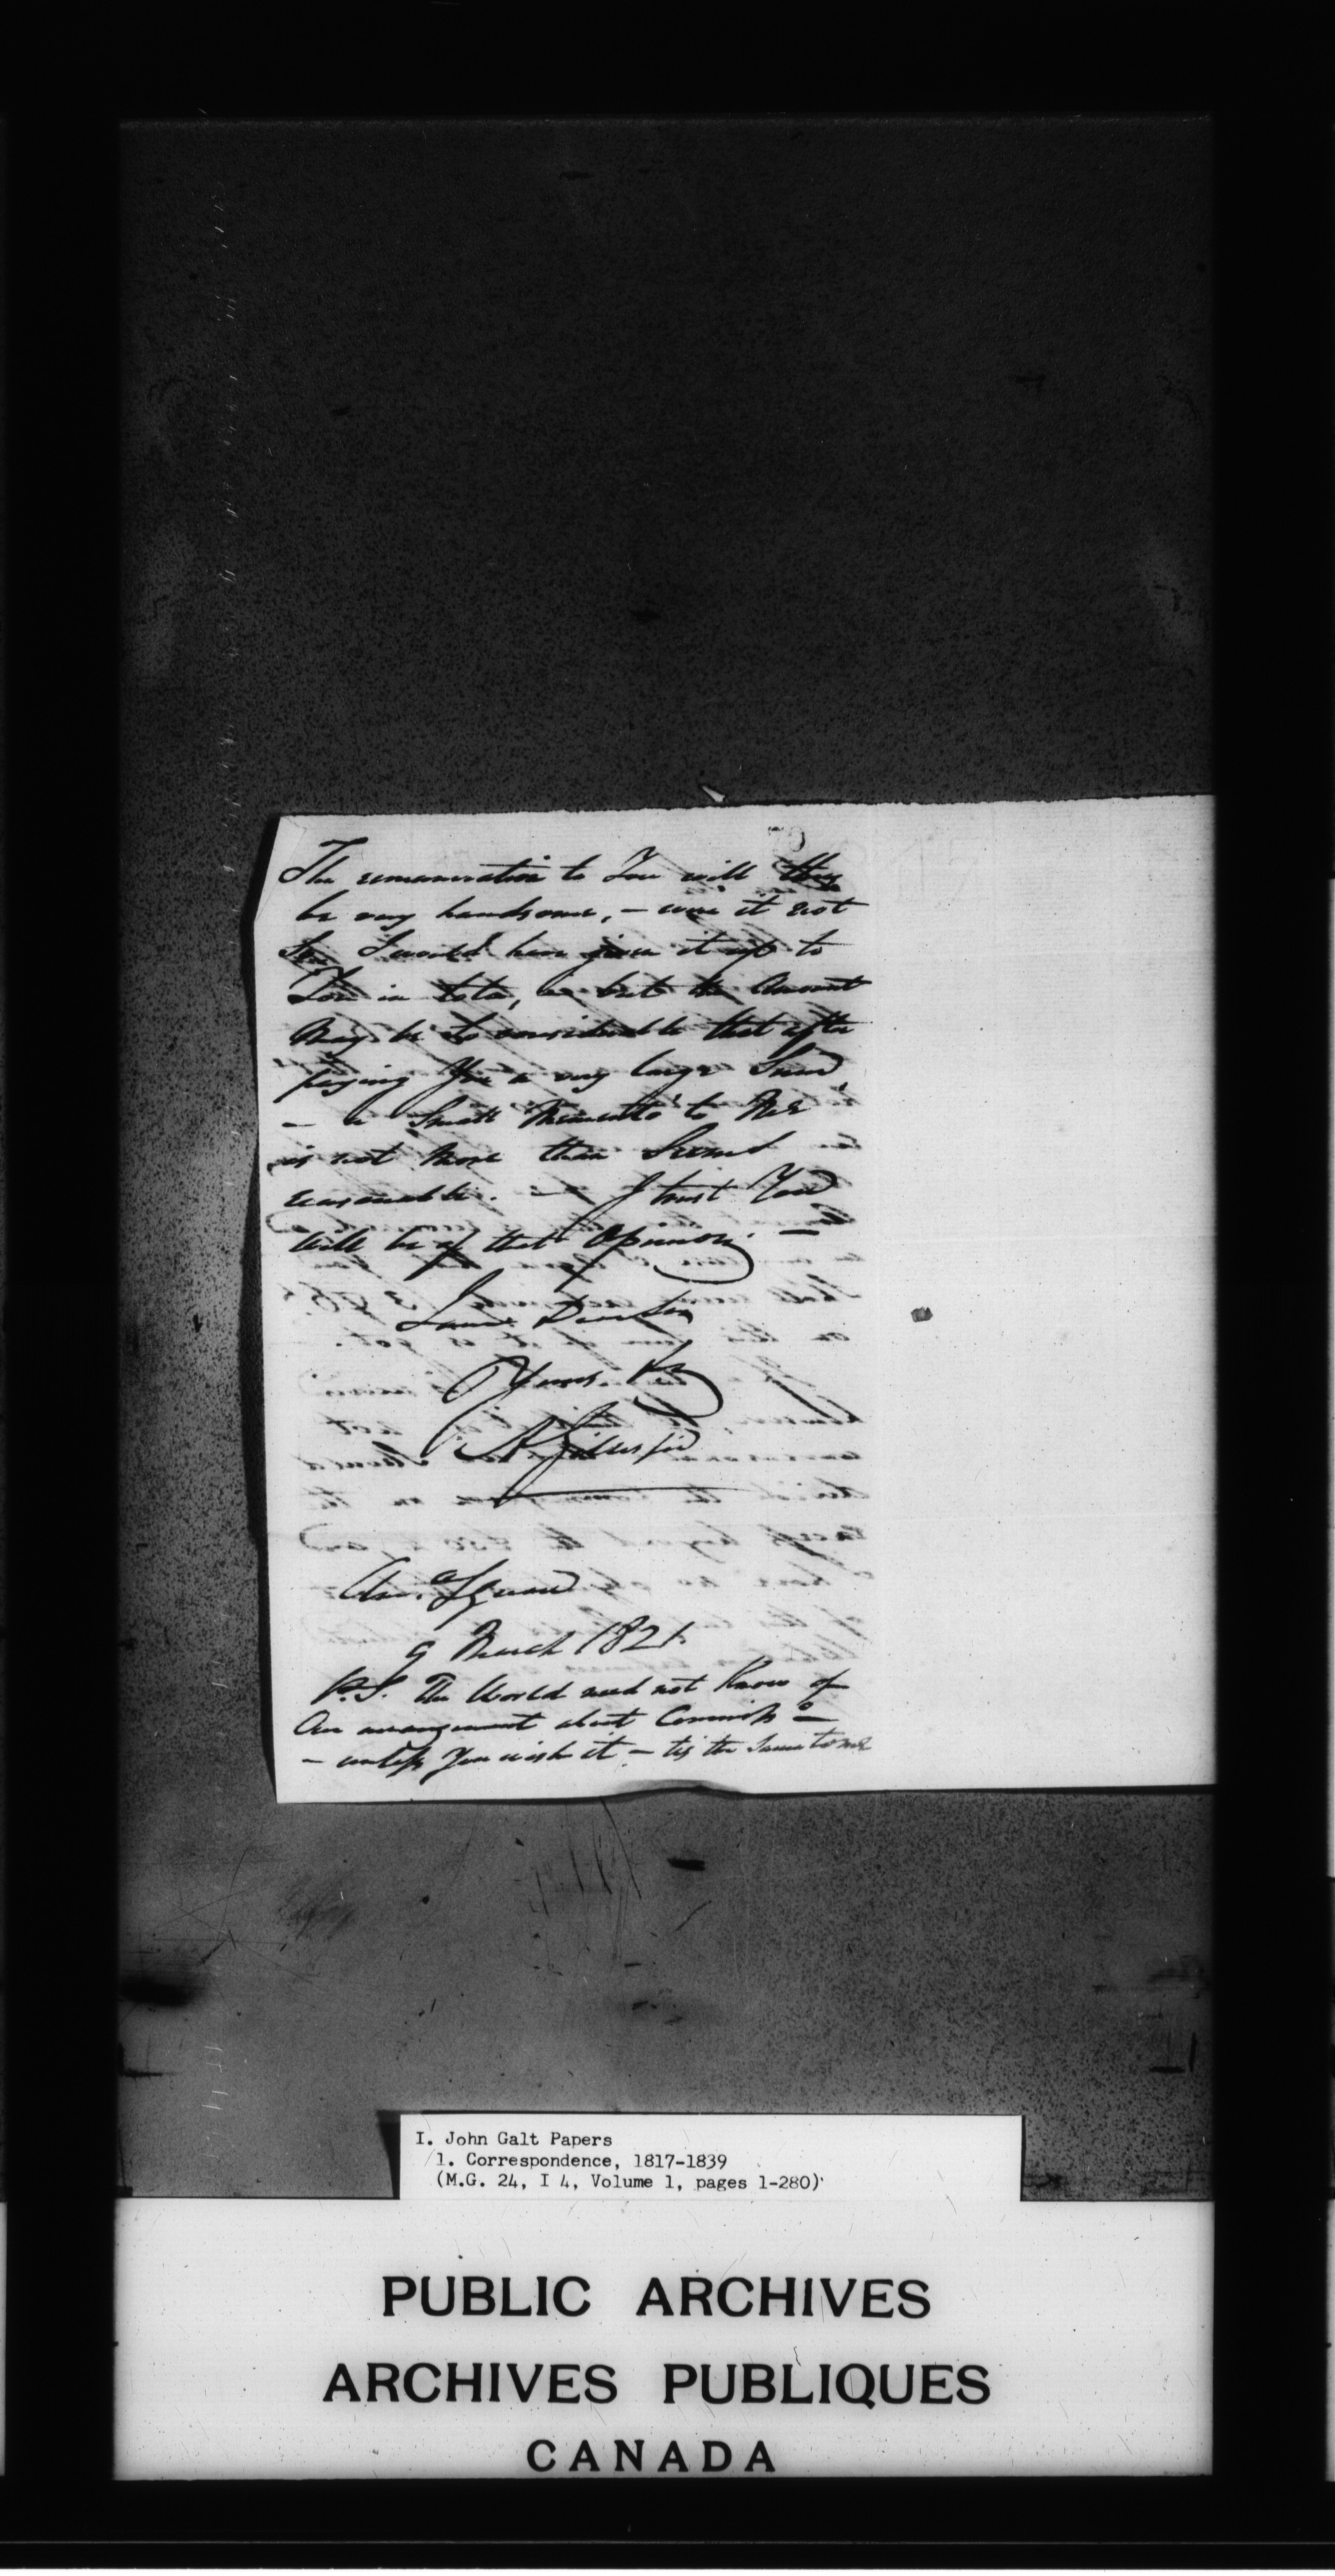 The remuneration to You will thus
be very handsome, – were it not
So, I would have given it up to
You in toto, but the Amount
May be So considerable that after
paying You a very large Sum
– a Small Memento to Me
is not More than Seems
reasonable. – I trust You
Will be of that Opinion. –
Dear Sir
Yours
A Gillespie
Square
9 March 1821.
P.S. The World need not Know of
Our arrangement about Commissn
– unless You wish it – tis the Same to me
I. John Galt Papers
1. Correspondence, 1817-1839
(M.G. 24, I 4, Volume 1, pages 1-280)
PUBLIC ARCHIVES
ARCHIVES PUBLIQUES
CANADA